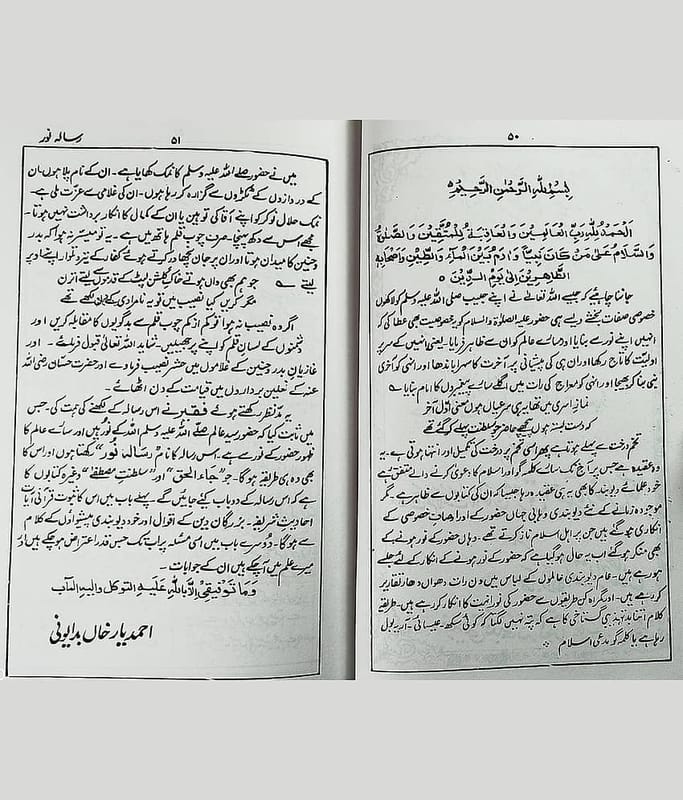 ۵۰
بِسْمِ اللهِ الرَّحْمٰنِ الرَّحِيْمِ
اَلْحَمْدُ لِلّٰهِ رَبِّ الْعَالَمِيْنَ وَالْعَاقِبَةُ لِلْمُتَّقِيْنَ وَالصَّلٰوةُ
وَالسَّلَامُ عَلٰى مَنْ كَانَ نَبِيًّا وَّاٰدَمُ بَيْنَ الْمَاءِ وَالطِّيْنِ وَاَصْحَابِهِ
الطَّاهِرِيْنَ اِلٰى يَوْمِ الدِّيْنِ ۵
جاننا چاہئے کہ جیسے اللہ تعالٰے نے اپنے حبیب صلی اللہ علیہ وسلم کو لاکھوں
خصوصی صفات بخشے ویسے ہی حضور علیہ الصلوٰۃ والسلام کو یہ خصوصیت بھی عطا کی کہ
انہیں اپنے نور سے بنایا اور سارے عالم کو ان سے ظاہر فرمایا۔ یعنی انہیں کے سر پر
اولیت کا تاج رکھا اور ان ہی کی پیشانی پر آخرت کا سہرا باندھا اور انہی کو آخری
نبی بنا کر بھیجا اور انہی کو معراج کی رات میں اگلے سارے پیغمبروں کا امام بنایا ؎
نماز اسری میں تھا یہی سر عیاں ہوں معنیٔ اول آخر
کہ دست بستہ ہوں پیچھے حاضر جو سلطنت پہلے کر گئے تھے
تخم درخت سے پہلے ہوتا ہے پھر اسی تخم پر درخت کی تکمیل اور انتہا ہوتی ہے۔ یہ
وہ عقیدہ ہے جس پر آج تک سارے کلمہ گو اور اسلام کا دعویٰ کرنے والے متفق تھے
خود علمائے دیوبند کا بھی یہ ہی عقیدہ رہا جیسا کہ ان کی کتابوں سے ظاہر ہے۔ مگر
موجودہ زمانہ کے نئے دیوبندی وہابی جہاں حضور کے اور اوصاف خصوصی کے
انکاری ہو گئے ہیں جن پر اہل اسلام ناز کرتے تھے۔ وہاں حضور کے نور ہونے کے
بھی منکر ہو گئے اب یہ حال ہو گیا ہے کہ حضور کے نور ہونے کے انکار کے لئے جلسے
ہو رہے ہیں۔ خام دیوبندی عالموں کے لباس میں دن رات دھواں دھار تقاریر
کر رہے ہیں۔ اور گمراہ کن طریقوں سے حضور کی نورانیت کا انکار کر رہے ہیں۔ طریقہ
کلام اتنا بد تہذیبی گستاخی کا ہے کہ پتہ نہیں لگتا کہ کوئی سکھ، عیسائی، آریہ بول
رہا ہے یا کلمہ گو مدعی اسلام
۵۱
رسالہ نور
میں نے حضور صلے اللہ علیہ وسلم کا نمک کھایا ہے۔ ان کے نام پلا ہوں ان
کے دروازوں کے ٹکڑوں سے گزارہ کر رہا ہوں۔ ان کی غلامی سے عزت ملی ہے۔
نمک حلال نوکر کو اپنے آقا کی توہین یا ان کے کمال کا انکار برداشت نہیں ہوتا۔
مجھے اس سے دکھ پہنچا۔ صرف چوب قلم ہاتھ میں ہے۔ یہ تو میسر نہ ہوا کہ بدر
وحنین کا میدان ہوتا اور ان پر جان نچھاور کرتے ہوئے کفار کے تیر و تلوار اپنے اوپر
لیتے ؎ جو ہم بھی واں ہوتے خاک گلشن لپٹ کے قدموں سے لیتے اترن
مگر کریں کیا نصیب میں تو یہ نامرادی کے دن لکھے تھے
اگر وہ نصیب نہ ہوا تو کم از کم چوب قلم سے بدگویوں کا مقابلہ کریں اور
دشمنوں کے لسان قلم کو اپنے پر جھیلیں۔ شاید اللہ تعالٰی قبول فرمائے۔ اور
غازیان بدر حنین کے غلاموں میں حشر نصیب فرماوے اور حضرت حسان رضی اللہ
عنہ کے نعلین برداروں میں قیامت کے دن اٹھائے۔
یہ مدنظر رکھتے ہوئے فقیر نے اس رسالہ کے لکھنے کی نیت کی۔ جس
میں ثابت کیا کہ حضور سید عالم صلے اللہ علیہ وسلم اللہ کے نور ہیں اور سارے عالم کا
ظہور حضور کے نور سے ہے۔ اس رسالہ کا نام رسالہ نور رکھتا ہوں اور اس کا
بھی وہ ہی طریقہ ہوگا۔ جو "جاء الحق" اور "سلطنت مصطفےٰ" وغیرہ کتابوں کا
ہے کہ اس رسالہ کے دو باب کیئے جائیں گے پہلے باب میں اس کا ثبوت قرآنی آیات
احادیث شریفہ۔ بزرگان دین کے اقوال اور خود دیوبندی پیشواؤں کے کلام
سے ہوگا۔ دوسرے باب میں اس مسئلہ پر اب تک جس قدر اعتراض ہو چکے ہیں اور
میرے علم میں آ چکے ہیں ان کے جوابات۔
وَمَا تَوْفِيْقِيْ اِلَّا بِاللهِ عَلَيْهِ التوكل واليه المآب
احمد یار خاں بدایونی